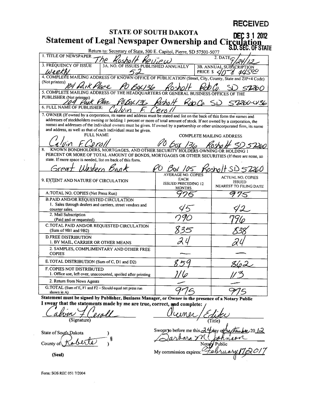 RECEIVED
DEC 3 1 2012
S.D. SEC. OF STATE
STATE OF SOUTH DAKOTA
Statement of Legal Newspaper Ownership and Circulation
Return to: Secretary of State, 500 E. Capitol, Pierre, SD 57501-5077
1. TITLE OF NEWSPAPER The Rosholt Review
2. DATE
3. FREQUENCY OF ISSUE weekly
3A. NO. OF ISSUES PUBLISHED ANNUALLY 52
3B. ANNUAL SUBSCRIPTION PRICE $
4. COMPLETE MAILING ADDRESS OF KNOWN OFFICE OF PUBLICATION (Street, City, County, State and ZIP+4 Code)
(Not printers) 104 Park Place PO Box 136 Rosholt Rob Co SD 57260
5. COMPLETE MAILING ADDRESS OF THE HEADQUARTERS OR GENERAL BUSINESS OFFICES OF THE
PUBLISHER (Not printer) 104 Park Place PO Box 136 Rosholt Rob Co SD 57260
6. FULL NAME OF PUBLISHER: Calvin F. Ceroll
7. OWNER (If owned by a corporation, its name and address must be stated and also on the back of this form the names and
addresses of stockholders owning or holding 1 percent or more of total amount of stock. If not owned by a corporation, the
names and addresses of the individual owners must be given. If owned by a partnership or other unincorporated firm, its name
and address, as well as that of each individual must be given.
FULL NAME
COMPLETE MAILING ADDRESS
Calvin F. Ceroll
PO Box 136 Rosholt SD 57260
8. KNOWN BONDHOLDERS, MORTGAGES, AND OTHER SECURITY HOLDERS OWNING OR HOLDING 1
PERCENT OR MORE OF TOTAL AMOUNT OF BONDS, MORTGAGES OR OTHER SECURITIES (If there are none, so
state. If more space is needed, list on back of this form.
Great Western Bank
PO Box 105 Rosholt SD 57260
9. EXTENT AND NATURE OF CIRCULATION
AVERAGE NO. COPIES EACH ISSUED PRECEDING 12 MONTHS
ACTUAL NO. COPIES ISSUED NEAREST TO FILING DATE
A. TOTAL NO. COPIES (Net Press Run) 975 975
B. PAID AND/OR REQUESTED CIRCULATION
1. Sales through dealers and carriers, street vendors and counter sales. 45 42
2. Mail Subscription (Paid and/or requested) 790 796
C. TOTAL PAID AND/OR REQUESTED CIRCULATION (Sum of 9B1 and 9B2) 835 838
D. FREE DISTRIBUTION
1. BY MAIL, CARRIER OR OTHER MEANS 24 24
2. SAMPLES, COMPLIMENTARY AND OTHER FREE COPIES
E. TOTAL DISTRIBUTION (Sum of C, D1 and D2) 859 862
F. COPIES NOT DISTRIBUTED
1. Office use, left over, unaccounted, spoiled after printing 116 113
2. Return from News Agents
G. TOTAL (Sum of E, F1 and F2 – Should equal net press run shown in A) 975 975
Statement must be signed by Publisher, Business Manager, or Owner in the presence of a Notary Public
I swear that the statements made by me are true, correct, and complete:
Calvin F. Ceroll
(Signature)
Owner/Editor
(Title)
State of South Dakota
County of Roberts
Sworn to before me this 24 day of September 2012
Barbara M. Johnson
Notary Public
(Seal)
My commission expires: February 17 2017
Form: SOS REC 051 7/2004